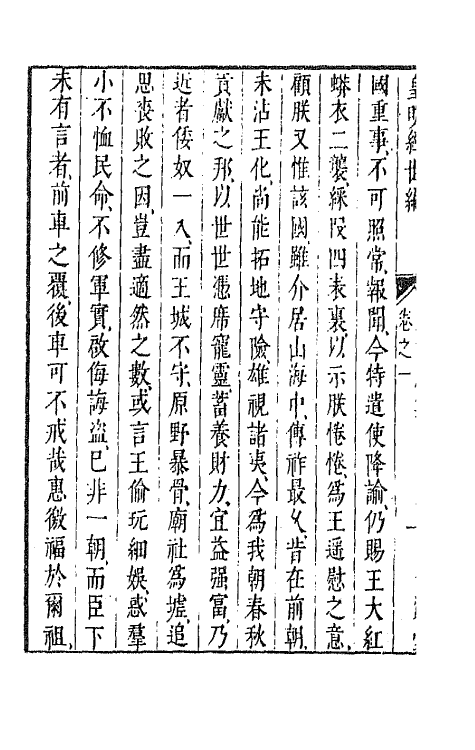 卷之一
國重事、不可照常、報聞、今特遣使降諭、仍賜王大紅
蟒衣二襲、綵段四表裏、以示朕惓惓爲王遥慰之意、
顧朕又惟該國雖介居山海中、傳祚最久、昔在前朝、
未沾王化、尚能拓地守險、雄視諸夷、今爲我朝春秋
貢獻之邦、以世世憑席寵靈、蓄養財力、宜益强富、乃
近者倭奴一入、而王城不守、原野暴骨、廟社爲墟、追
思喪敗之因、豈盡適然之數、或言王偷玩細娯、惑羣
小不恤民命、不修軍實、啟侮誨盜、已非一朝、而臣下
未有言者、前車之覆、後車可不戒哉、惠徼福於爾祖、